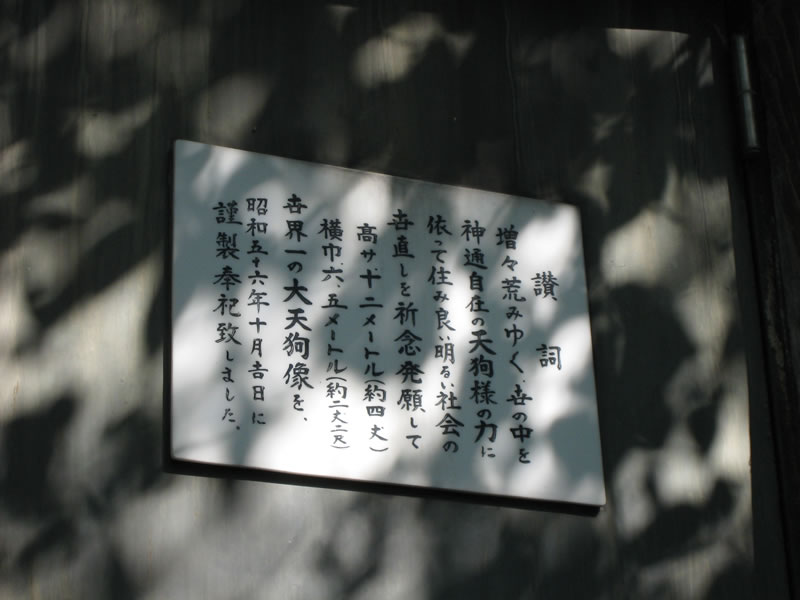 讃詞
増々荒みゆく、世の中を
神通自在の天狗様の力に
依って住み良い明るい社会の
世直しを祈念発願して
高サ十二メートル(約四丈)
横巾六、五メートル(約二丈二尺)
世界一の大天狗像を、
昭和五十六年十月吉日に
謹製奉祀致しました。